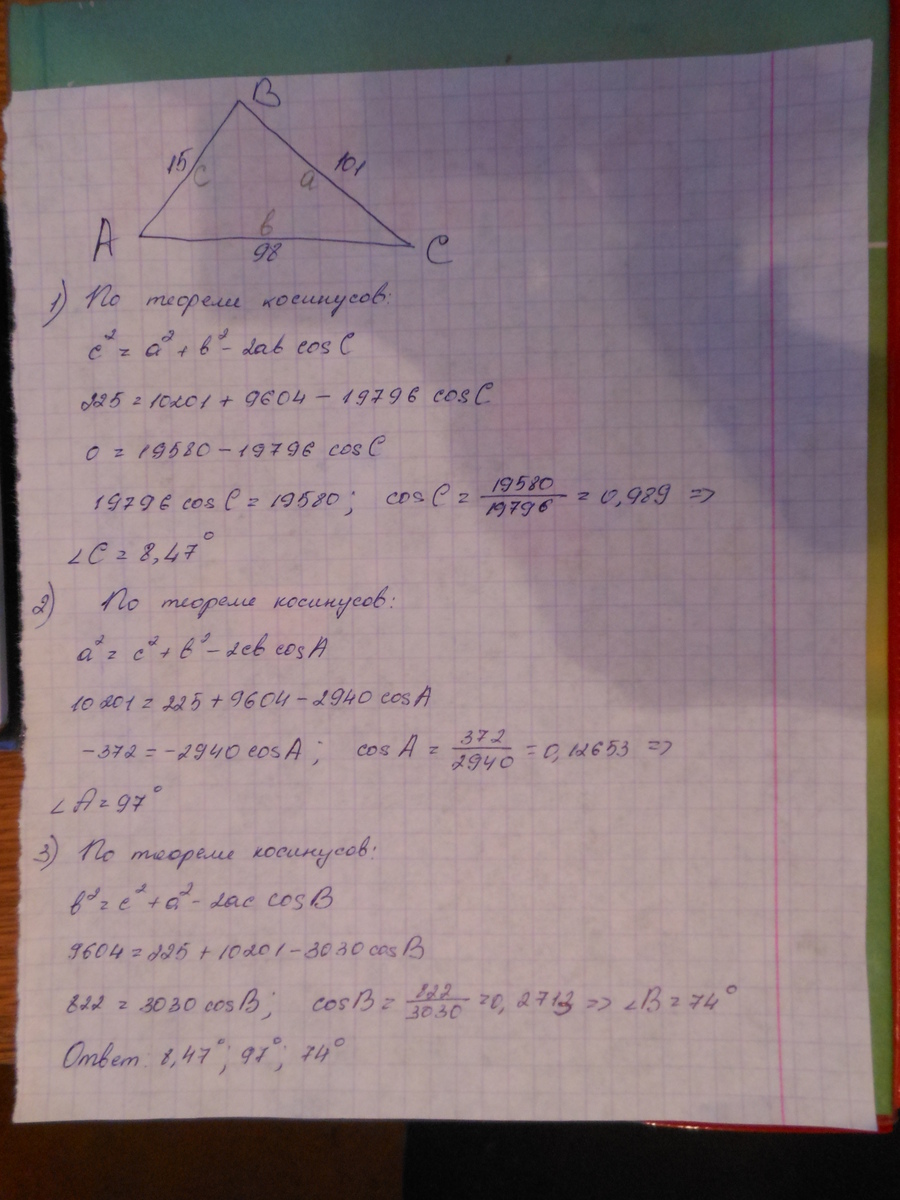 B
15 c a 101
A в C
98
1) По теореме косинусов:
c² = a² + в² - 2aв cosC
225 = 10201 + 9604 - 19796 cosC
0 = 19580 - 19796 cosC
19796 cosC = 19580; cosC = 19580/19796 = 0,989 =>
∠C = 8,47°
2) По теореме косинусов:
a² = c² + в² - 2cв cosA
10201 = 225 + 9604 - 2940 cosA
-372 = -2940 cosA; cosA = 372/2940 = 0,12653 =>
∠A = 97°
3) По теореме косинусов:
в² = c² + a² - 2ac cosB
9604 = 225 + 10201 - 3030 cosB
822 = 3030 cosB; cosB = 822/3030 = 0,2713 => ∠B = 74°
Ответ: 8,47°; 97°; 74°